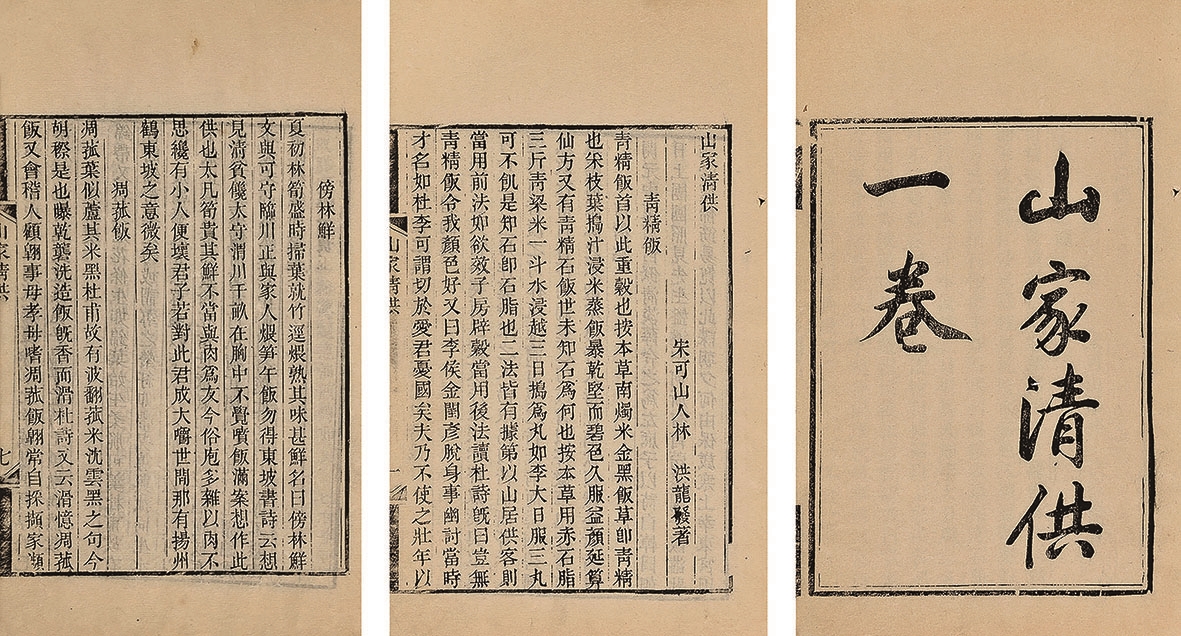 山家清供
一卷
山家清供
宋可山人林 洪龍發著
青精飯
青精飯首以此重穀也按本草南燭米金黑飯草即青精
也采枝葉搗汁浸米蒸飯暴乾堅而碧色久服益顏延算
仙方又有青精石飯世未知石爲何也按本草用赤石脂
三斤青梁米一斗水浸越三日搗爲丸如李大日服三丸
可不飢是知石即石脂也二法皆有據第以山居供客則
當用前法如欲效子房辟穀當用後法讀杜詩既曰豈無
青精飯令我顏色好又曰李侯金閨彥脫身事幽討當時
才名如杜李可謂切於愛君憂國矣夫乃不使之壯年以
山家清供
一
傍林鮮
夏初林筍盛時掃葉就竹逕煨熟其味甚鮮名曰傍林鮮
文與可守臨川正與家人煨筍午飯勿得東坡書詩云想
見清貧饞太守渭川千畝在胸中不覺噴飯滿案想作此
供也大凡筍貴其鮮不當與肉爲友今俗庖多雜以肉不
思纔有小人便壞君子若對此君成大嚼世間那有揚州
鶴東坡之意微矣
凋菰飯
凋菰葉似蘆其米黑杜甫故有波翻菰米沈雲黑之句今
胡穄是也曝乾礱洗造飯既香而滑杜詩又云滑憶凋菰
飯又會稽人顧翱事母孝母嗜凋菰飯翱常自採擷家瀕
山家清供
七